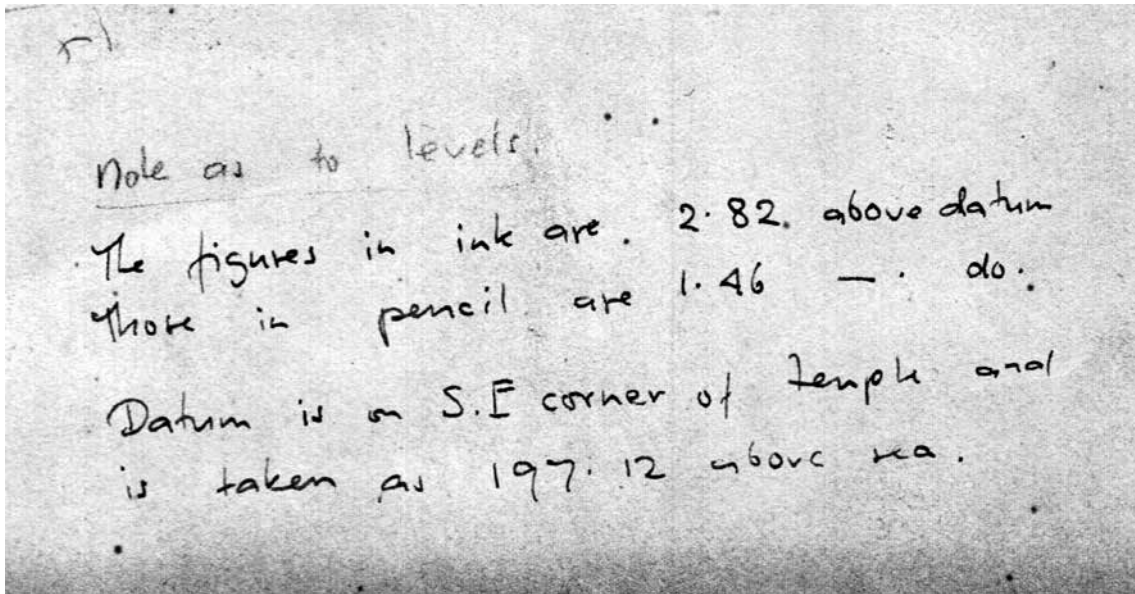 Note as to levels.
The figures in ink are. 2.82. above datum
Those in pencil are 1.46 — . do.
Datum is on S.E corner of temple and
is taken as 197.12 above sea.